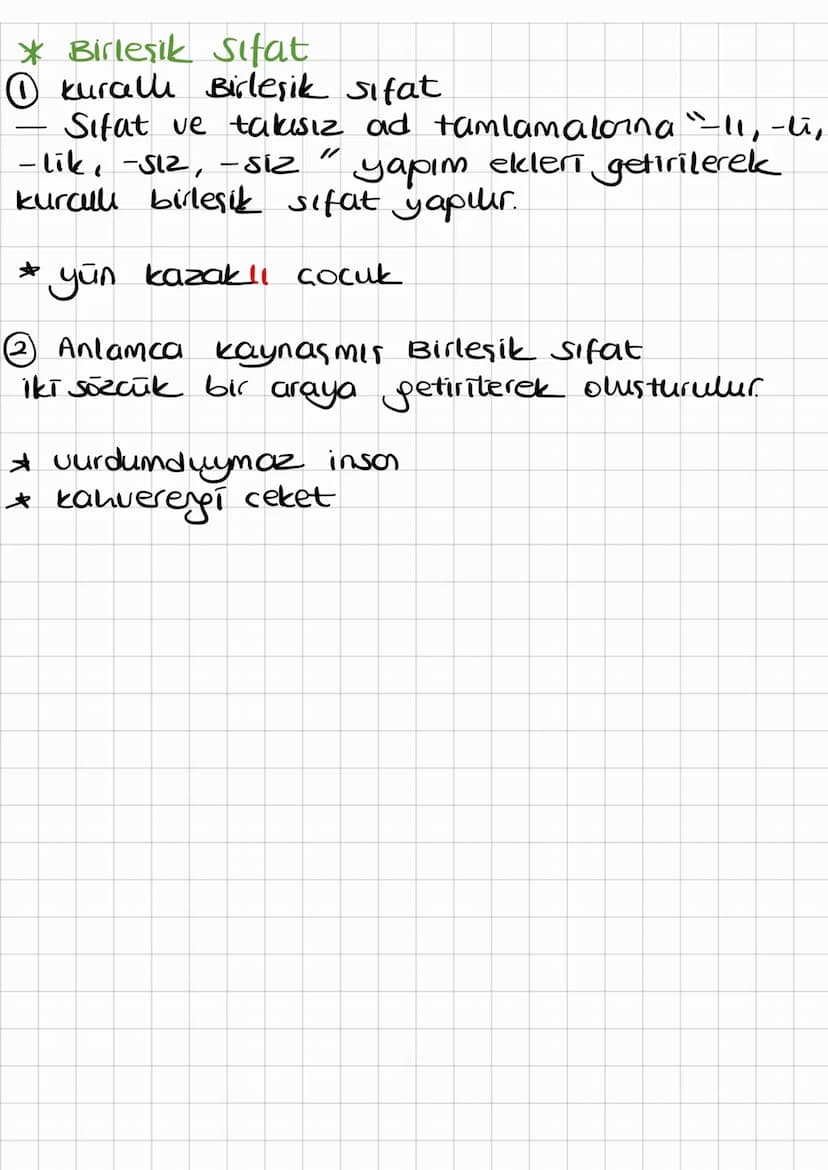 * Birleşik Sıfat
① Kurallı Birleşik sıfat
— Sıfat ve takısız ad tamlamalarına "-lı, -li,
-lik, -sız, -siz" yapım ekleri getirilerek
kurallı birleşik sıfat yapılır.
* yün kazaklı çocuk
② Anlamca kaynaşmış Birleşik sıfat
iki sözcük bir araya getirilerek oluşturulur.
* vurdumduymaz insan
* kahverengi ceket